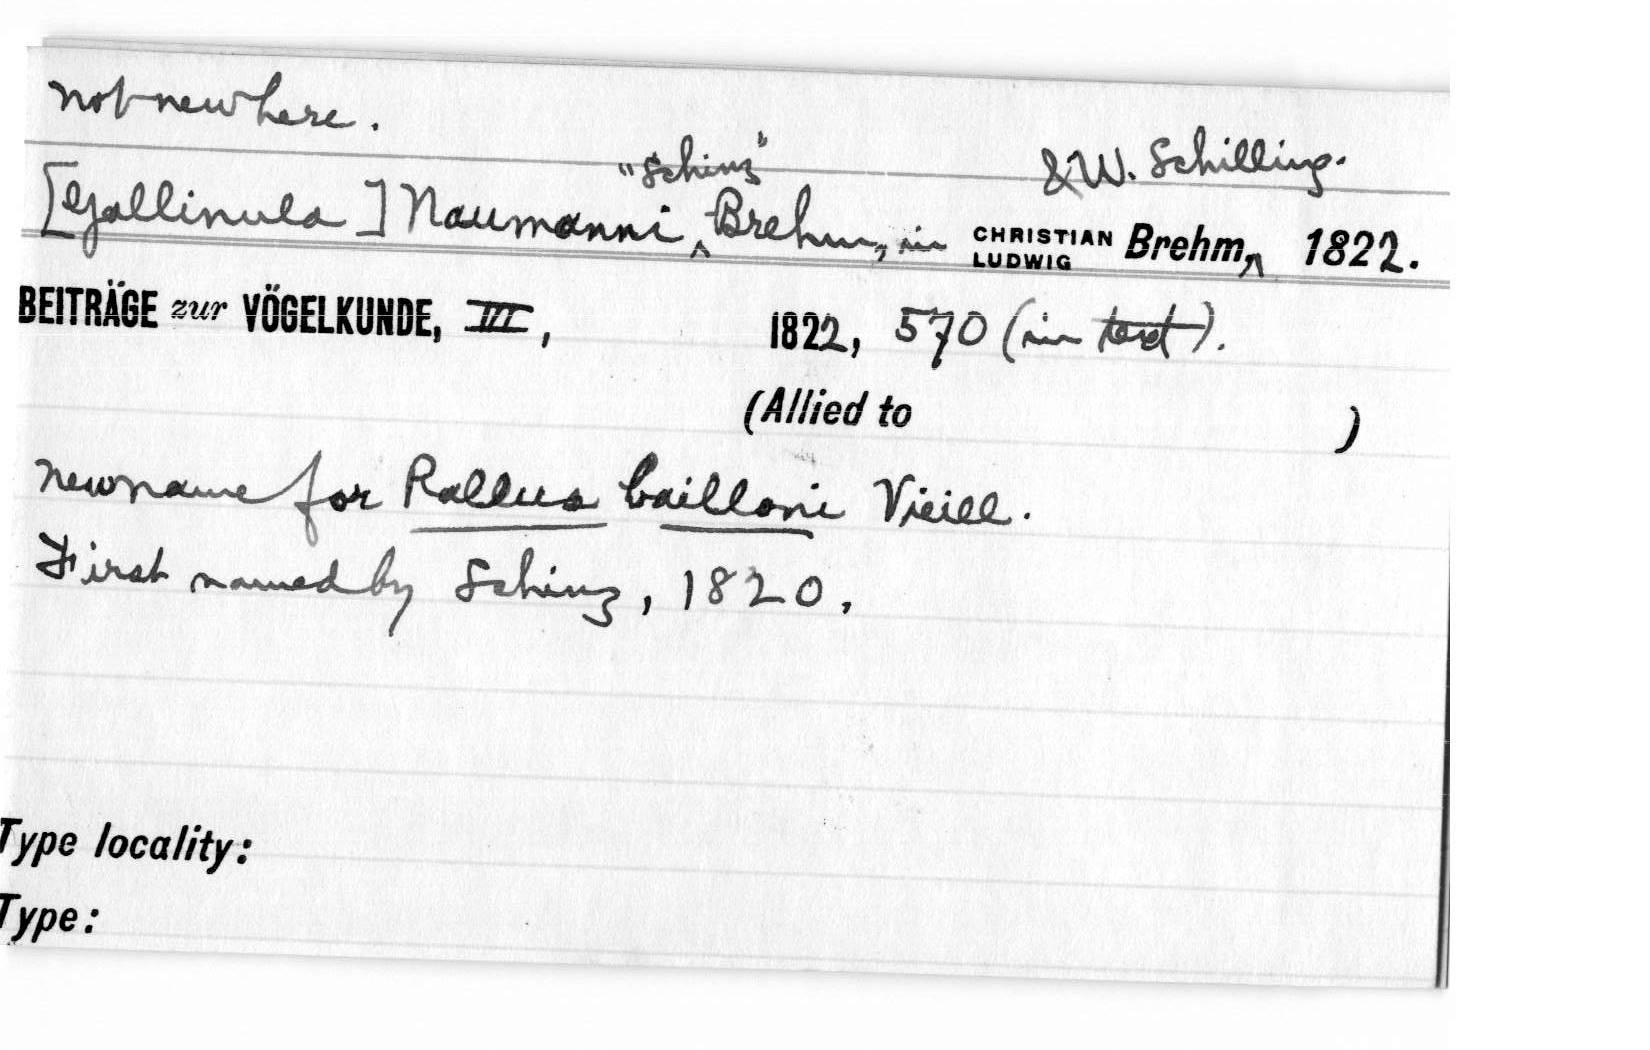 not new here.
"Schinz" & W. Schilling.
[Gallinula] Naumanni ^ Brehm, in CHRISTIAN LUDWIG Brehm, ^ 1822.
BEITRÄGE zur VÖGELKUNDE, III, 1822, 570 (in text).
(Allied to )
new name for Rallus bailloni Vieill.
First named by Schinz, 1820.
Type locality:
Type: